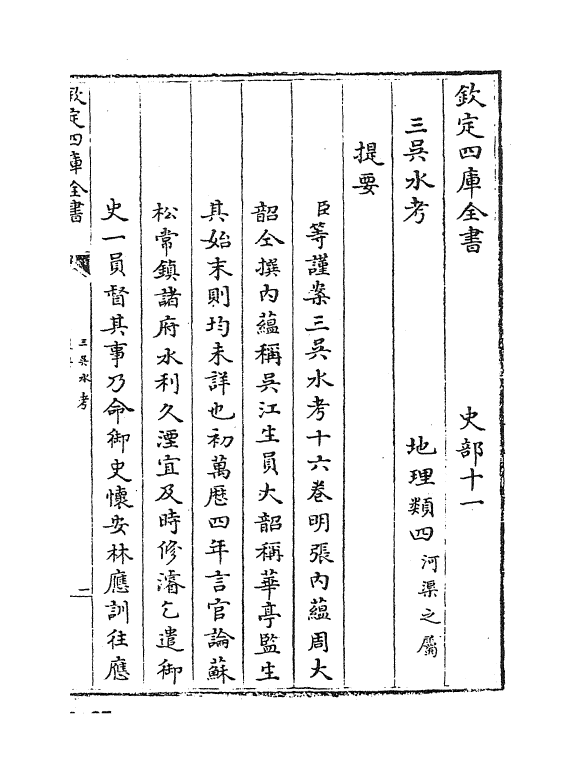 欽定四庫全書 史部十一
三吳水考 地理類四河渠之屬
提要
臣等謹案三吳水考十六卷明張內蘊周大
韶仝撰內蘊稱吳江生員大韶稱華亭監生
其始末則均未詳也初萬厯四年言官論蘇
松常鎮諸府水利久湮宜及時修濬乞遣御
史一員督其事乃命御史懷安林應訓往應
欽定四庫全書
三吳水考